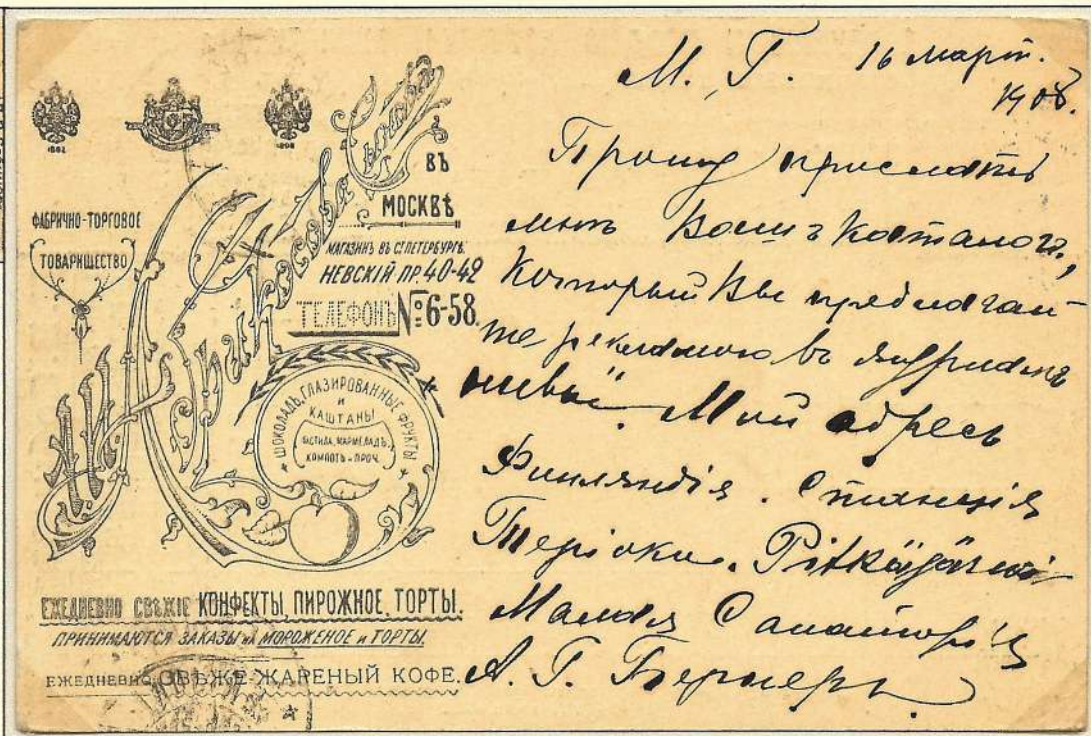 1882
1896
ФАБРИЧНО-ТОРГОВОЕ
ТОВАРИЩЕСТВО
А. И. Абрикосова Сыновей
ВЪ
МОСКВѢ
МАГАЗИНЪ ВЪ С.ПЕТЕРБУРГѢ.
НЕВСКІЙ ПР. 40-42
ТЕЛЕФОНЪ № 6-58.
ШОКОЛАДЪ, ГЛАЗИРОВАННЫЕ ФРУКТЫ
И
КАШТАНЫ
ПАСТИЛА, МАРМЕЛАДЪ,
КОМПОТЪ и ПРОЧ.
ЕЖЕДНЕВНО СВѢЖІЕ КОНФЕКТЫ, ПИРОЖНОЕ, ТОРТЫ.
ПРИНИМАЮТСЯ ЗАКАЗЫ на МОРОЖЕНОЕ и ТОРТЫ.
ЕЖЕДНЕВНО СВѢЖЕ-ЖАРЕНЫЙ КОФЕ.
М. Г. 16 март.
1908.
Прошу прислать
мнѣ Вашъ каталогъ,
который Вы предлагае-
те рекламою въ журналѣ
Мой адресъ
Финляндія. Станція
Теріоки. Pitkäjärvi
Малая Санаторія
А. Г. Бернеръ